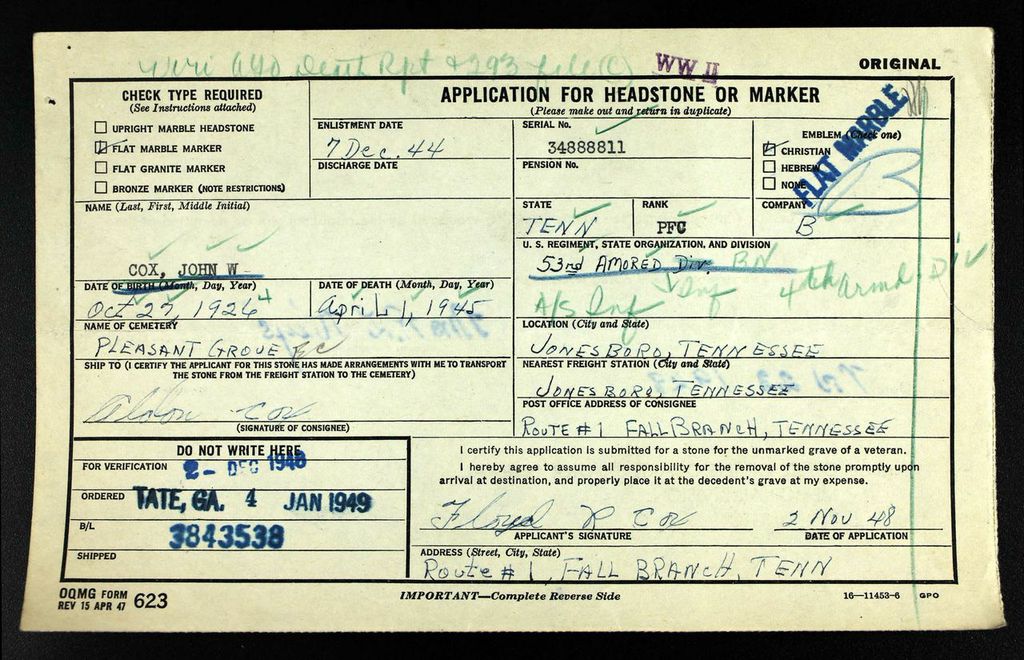 Death Rpt & 293 file (C) WW II
ORIGINAL
CHECK TYPE REQUIRED
(See Instructions attached)
UPRIGHT MARBLE HEADSTONE
FLAT MARBLE MARKER
FLAT GRANITE MARKER
BRONZE MARKER (NOTE RESTRICTIONS)
APPLICATION FOR HEADSTONE OR MARKER
(Please make out and return in duplicate)
ENLISTMENT DATE
7 Dec. 44
DISCHARGE DATE
SERIAL No.
34888811
PENSION No.
EMBLEM (Check one)
CHRISTIAN
HEBREW
NONE
FLAT MARBLE
NAME (Last, First, Middle Initial)
COX, JOHN W
STATE
TENN
RANK
PFC
COMPANY
B
U. S. REGIMENT, STATE ORGANIZATION, AND DIVISION
53rd AMORED Div. BN
A/S Inf Inf 4th Armd Div
DATE OF BIRTH (Month, Day, Year)
Oct 27, 1926 4
DATE OF DEATH (Month, Day, Year)
April 1, 1945
NAME OF CEMETERY
PLEASANT GROVE
LOCATION (City and State)
JONESBORO, TENNESSEE
SHIP TO (I CERTIFY THE APPLICANT FOR THIS STONE HAS MADE ARRANGEMENTS WITH ME TO TRANSPORT
THE STONE FROM THE FREIGHT STATION TO THE CEMETERY)
Cox
(SIGNATURE OF CONSIGNEE)
NEAREST FREIGHT STATION (City and State)
JONESBORO, TENNESSEE
POST OFFICE ADDRESS OF CONSIGNEE
ROUTE #1 FALL BRANCH, TENNESSEE
DO NOT WRITE HERE
FOR VERIFICATION
2 - DEC 1948
ORDERED
TATE, GA. 4 JAN 1949
B/L
3843538
SHIPPED
I certify this application is submitted for a stone for the unmarked grave of a veteran.
I hereby agree to assume all responsibility for the removal of the stone promptly upon
arrival at destination, and properly place it at the decedent's grave at my expense.
Floyd R Cox
APPLICANT'S SIGNATURE
2 NOV 48
DATE OF APPLICATION
ADDRESS (Street, City, State)
Route #1, FALL BRANCH, TENN
OQMG FORM
REV 15 APR 47 623
IMPORTANT—Complete Reverse Side
16—11453-6 GPO